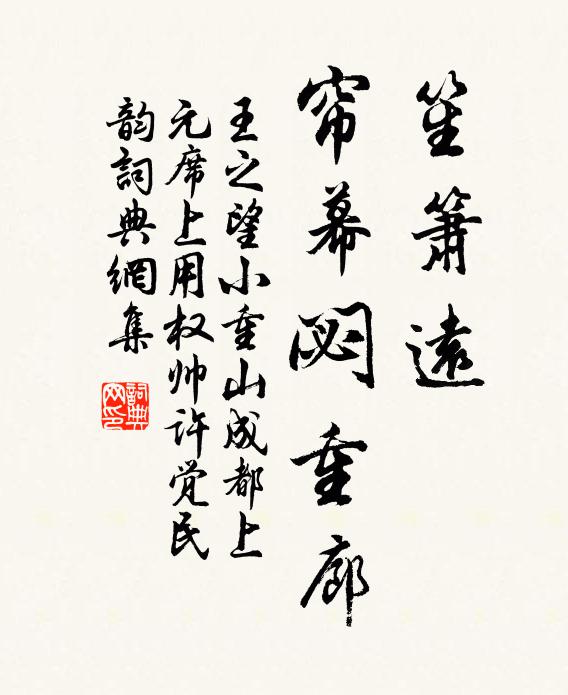 笙簫遠
帘幕閟重廊
王之望小重山成都上
元席上用权帅许觉民
韵詞典網集
詞典網印